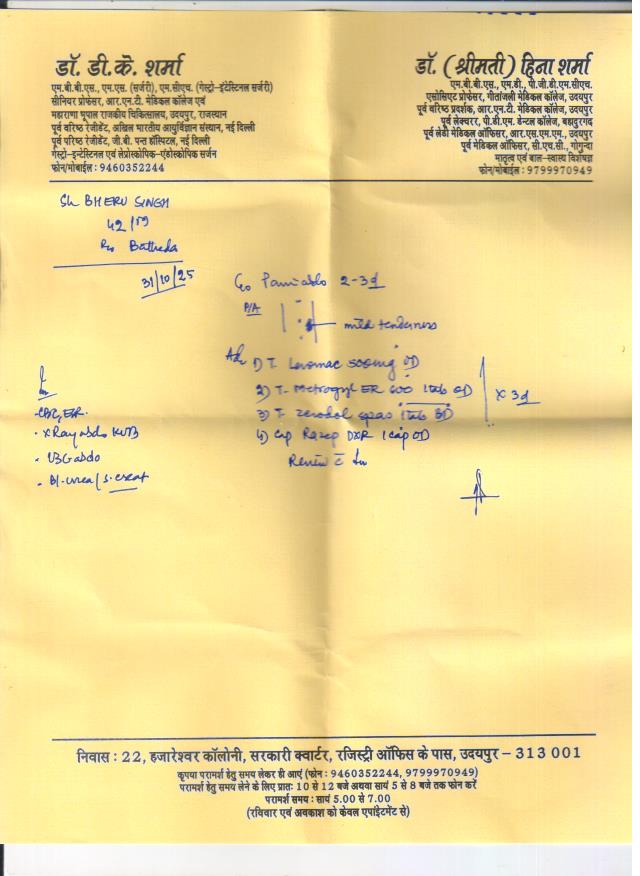 डॉ. डी.के. शर्मा
एम.बी.बी.एस., एम.एस. (सर्जरी), एम.सीएच. (गेस्ट्रो-इंटेस्टिनल सर्जरी)
सीनियर प्रोफेसर, आर.एन.टी. मेडिकल कॉलेज एवं
महाराणा भूपाल राजकीय चिकित्सालय, उदयपुर, राजस्थान
पूर्व वरिष्ठ रेजीडेंट, अखिल भारतीय आयुर्विज्ञान संस्थान, नई दिल्ली
पूर्व परिष्ठ रेजीडेंट, जी.बी. पन्त हॉस्पिटल, नई दिल्ली
गेस्ट्रो-इन्टेस्टिनल एवं लेप्रोस्कोपिक-एंडोस्कोपिक सर्जन
फोन/मोबाईल : 9460352244
डॉ. (श्रीमती) हिना शर्मा
एम.बी.बी.एस., एम.डी., पी.जी.डी.एम.सीएच.
एसोसिएट प्रोफेसर, गीतांजली मेडिकल कॉलेज, उदयपुर
पूर्व वरिष्ठ प्रदर्शक, आर.एन.टी. मेडिकल कॉलेज, उदयपुर
पूर्व लेक्चरर, पी.डी.एम. डेन्टल कॉलेज, बहादुरगढ
पूर्व लेडी मेडिकल ऑफिसर, आर.एस.एम.एम., उदयपुर
पूर्व मेडिकल ऑफिसर, सी.एच.सी., गोगुन्दा
मातृत्व एवं बाल-स्वास्थ्य विशेषज्ञ
फोन/मोबाईल : 9799970949
Sh BHERU SINGH
42/
R/o Batheda
31/10/25
C/o Pain abdo 2-3d
P/A
mild tenderness
Adv 1) T. Levomac 500mg OD
2) T- Metrogyl ER 600 1tab OD
3) T. zerodol spas 1tab BD
x 3d
4) Cap Razep DSR 1cap OD
Review c̄ Inv
Inv
- CBC, ESR
- XRay abdo KUB
- USG abdo
- Bl. urea / S. creat
निवास : 22, हजारेश्वर कॉलोनी, सरकारी क्वार्टर, रजिस्ट्री ऑफिस के पास, उदयपुर – 313 001
कृपया परामर्श हेतु समय लेकर ही आएं (फोन : 9460352244, 9799970949)
परामर्श हेतु समय लेने के लिए प्रातः 10 से 12 बजे अथवा सायं 5 से 8 बजे तक फोन करें
परामर्श समय : सायं 5.00 से 7.00
(रविवार एवं अवकाश को केवल एपॉइंटमेंट से)